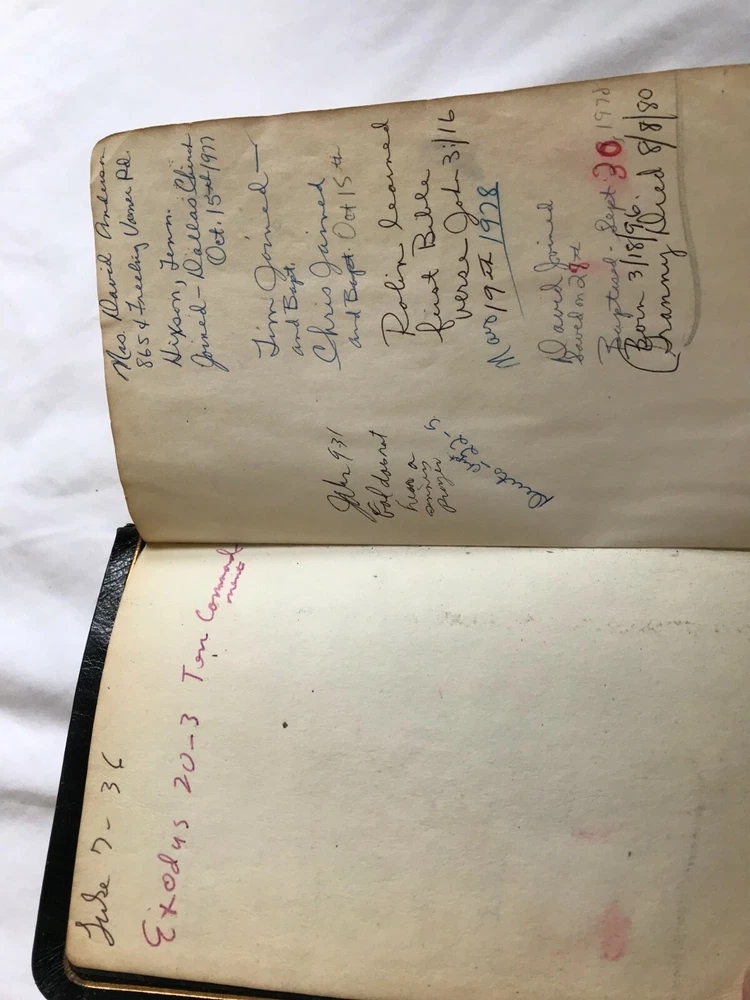 Luke 7-36
Exodus 20-3 Ten Command
ments
Mrs. David Anderson
8654 Freeling Varner Rd.
Hixson, Tenn.
Joined - Dallas Church
Oct. 15th 1977
Tim Joined -
and Bapt.
Chris Joined
and Bapt. Oct 15th
Robin learned
first Bible
verse John 3:/16
Mar 19th 1978
David Joined
Saved on 28th
Baptised - Sept 30, 1978
(Born 3/18/96
Granny Died 8/8/80
John 9-31
God does not
hear a
sinners
prayer